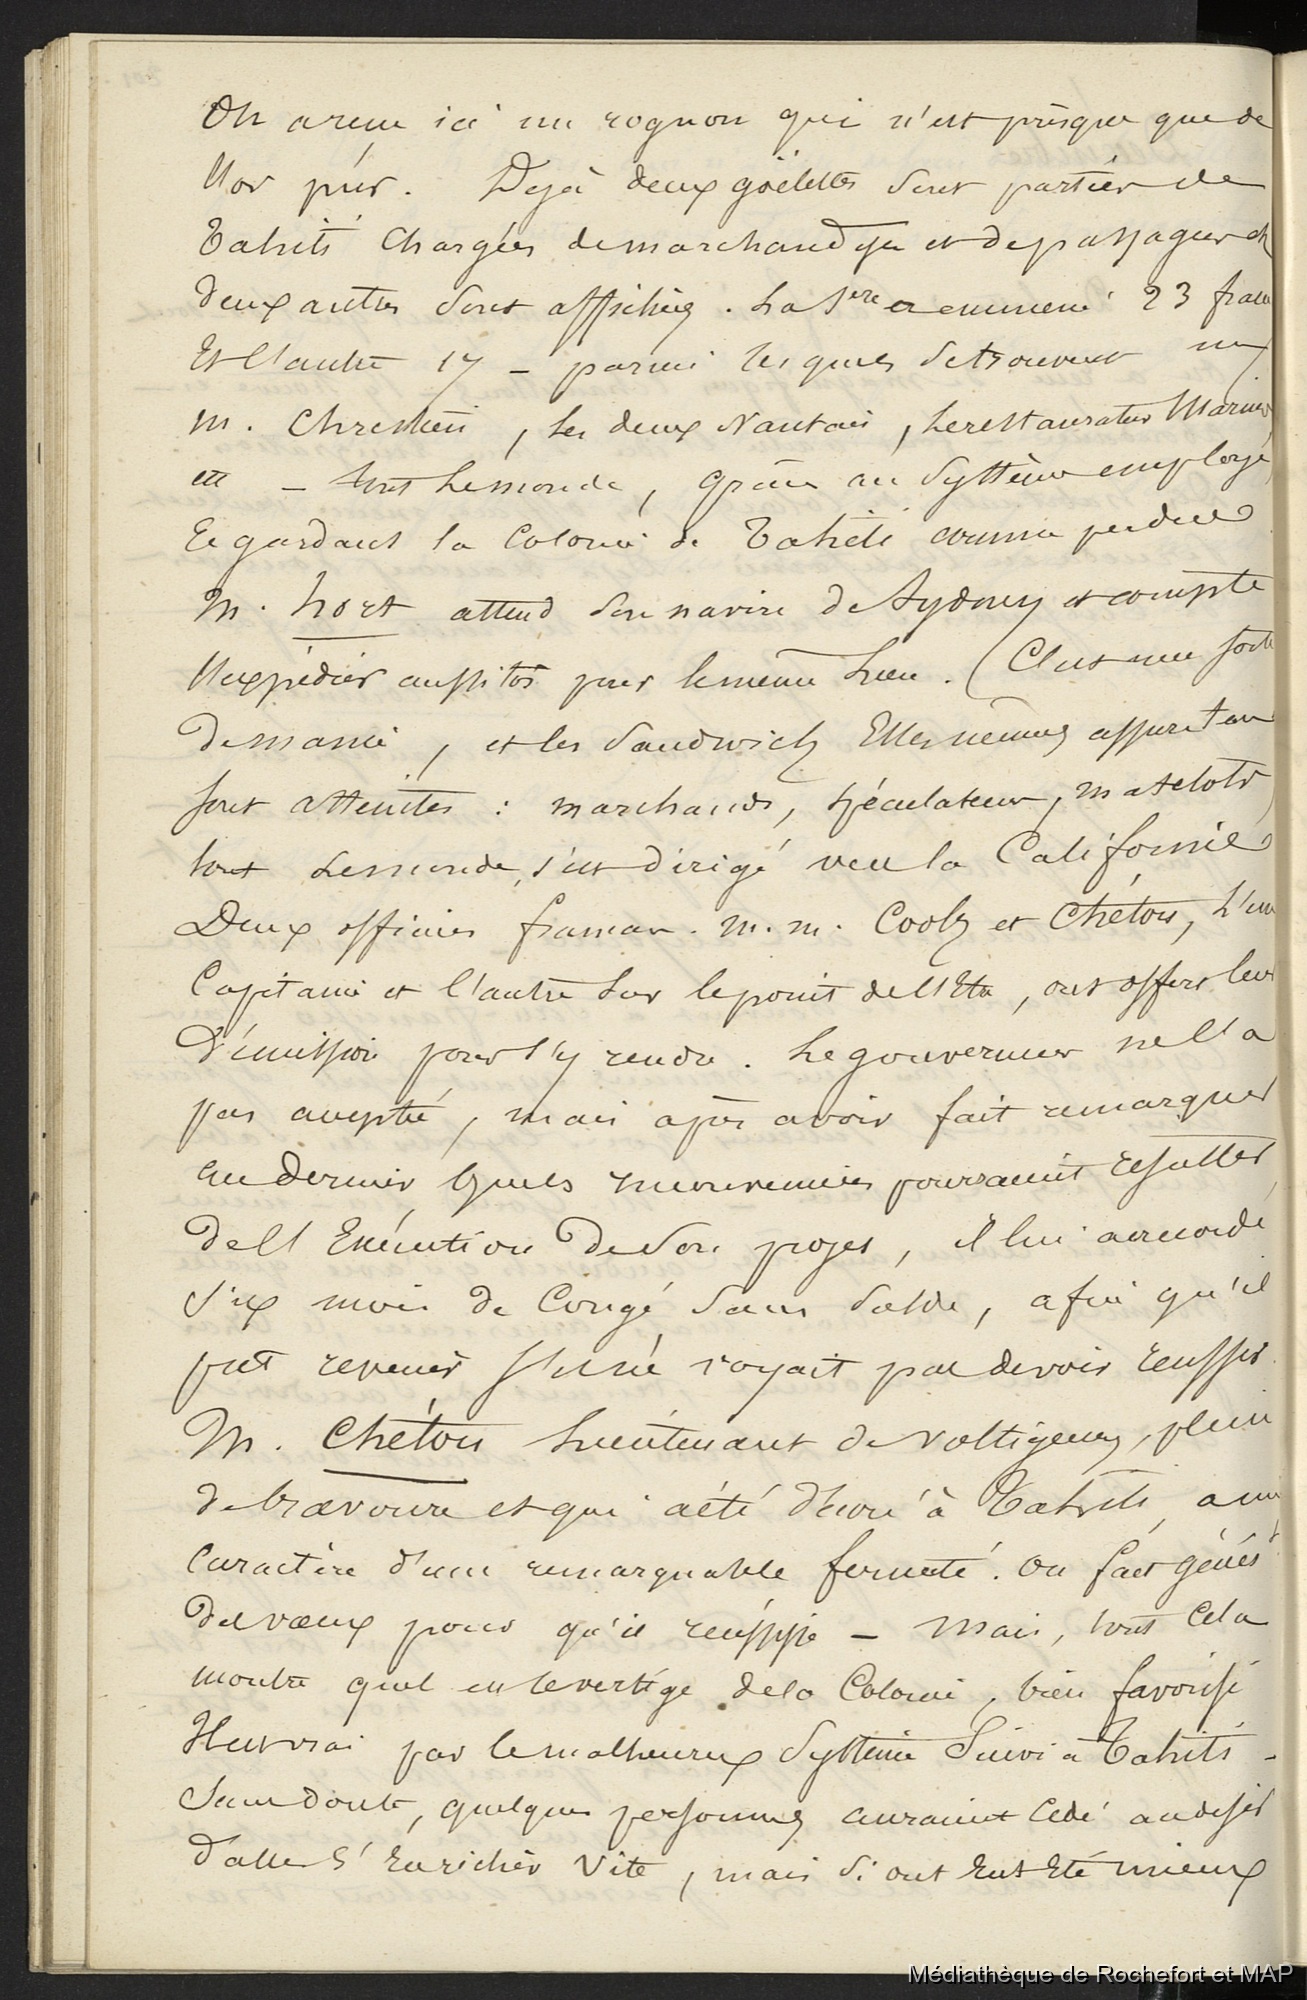 On a reçu ici un rognon qui n'est presque que de
l'or pur. Dejà deux goëlettes sont parties de
Tahiti chargées de marchandises et de passagers et
deux autres sont affichées. La 1ère a emmené 23 franc
Et l'autre 17 – parmi lesquels se trouvent
M. Chrestien, les deux Nantais, le restaurateur Marius
etc – tout le monde, grâce au système employé,
Regardant la Colonie de Tahiti comme perdue
M. Hort attend son navire de Sydney et compte
l'expédier aussitôt pour le même lieu. (C'est une sorte
de manie, et les Sandwich Elles mêmes assure t'on
sont atteintes : marchands, spéculateurs, matelots
tout le monde, s'est dirigé vers la Californie
Deux officiers français. M. M. Cooly et Chéton, l'un
Capitaine et l'autre sur le point de l'Etre, ont offert leur
démission pour s'y rendre. Le gouverneur ne l'a
pas acceptée, mais après avoir fait remarquer
au dernier, quels inconvenients pourraient résulter
de l'Exécution de son projet, il lui a accordé
six mois de Congé sans solde, afin qu'il
put revenir s'il ne voyait pas devoir reussir.
M. Chéton lieutenant de voltigeurs, plein
de bravoure et qui a été décoré à Tahiti, a un
Caractère d'une remarquable fermeté. On fait génér
des vœux pour qu'il réussisse – Mais, tout cela
montre quel est le vertige de la Colonie, bien favorisé
Il est vrai par le malheureux système Suivi à Tahiti –
Sans doute, quelques personnes auraient cédé au désir
d'aller s'Enrichir vite, mais si on eut Eté mieux